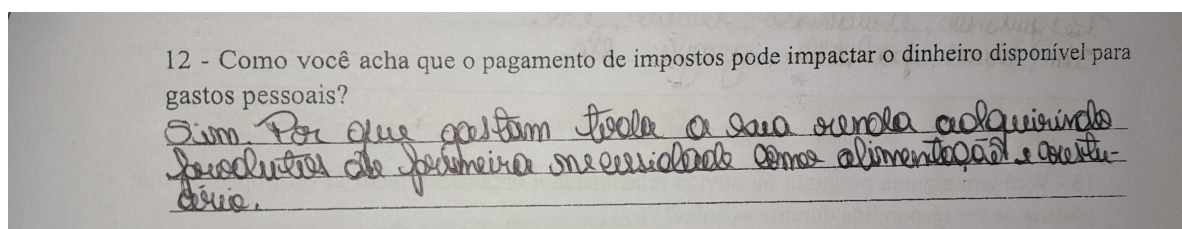 12 - Como você acha que o pagamento de impostos pode impactar o dinheiro disponível para
gastos pessoais?
Sim. Por que gastam toda a sua renda adquirindo
produtos de primeira necessidade como alimentação e vestu-
ário.